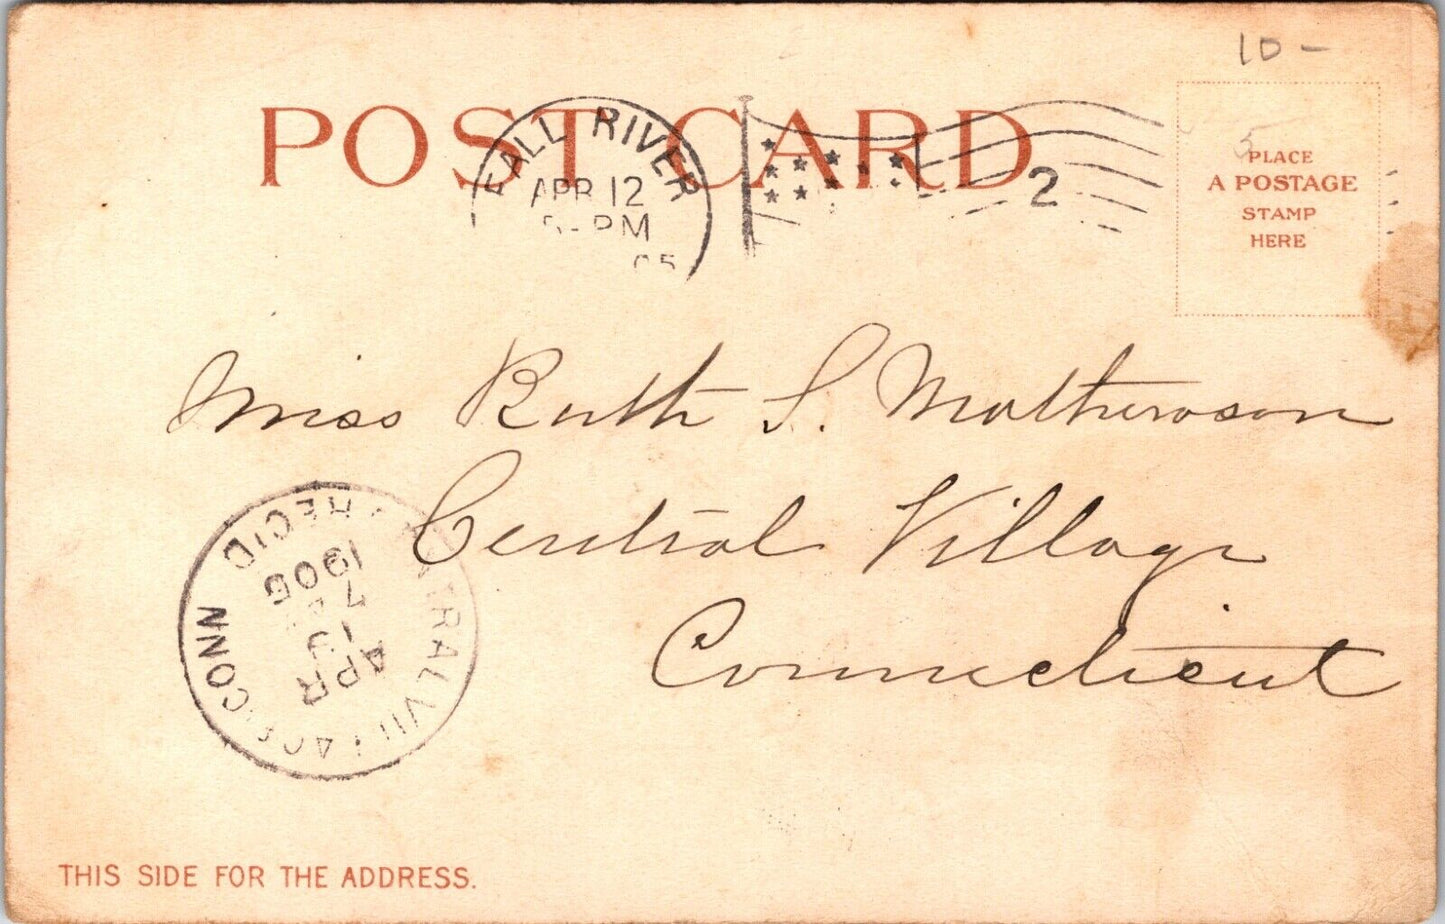 10-
POST CARD
FALL RIVER
APR 12
PM
05
2
5
PLACE
A POSTAGE
STAMP
HERE
Miss Ruth S. Mathewson
Central Village
Connecticut
REC'D.
CONN.
APR
13
7
1905
THIS SIDE FOR THE ADDRESS.